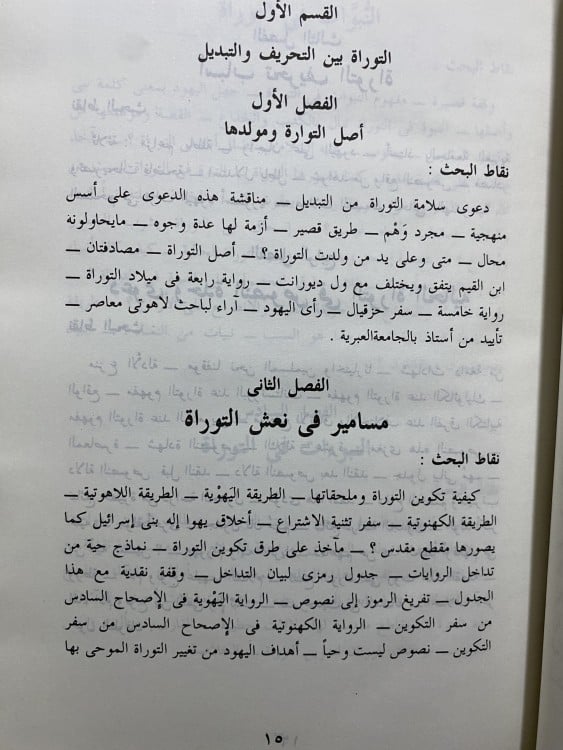 القسم الأول
التوراة بين التحريف والتبديل
الفصل الأول
أصل التوارة ومولدها
نقاط البحث :
دعوى سلامة التوراة من التبديل ــ مناقشة هذه الدعوى على أسس
منهجية ــ مجرد وَهْم ــ طريق قصير ــ أزمة لها عدة وجوه ــ مايحاولونه
محال ــ متى وعلى يد من ولدت التوراة ؟ ــ أصل التوراة ــ مصادفتان ــ
ابن القيم يتفق ويختلف مع ول ديورانت ــ رواية رابعة فى ميلاد التوراة ــ
رواية خامسة ــ سفر حزقيال ــ رأى اليهود ــ آراء لباحث لاهوتى معاصر ــ
تأييد من أستاذ بالجامعةالعبرية .
الفصل الثانى
مسامير فى نعش التوراة
نقاط البحث :
كيفية تكوين التوراة وملحقاتها ــ الطريقة اليَهْوية ــ الطريقة اللاهوتية ــ
الطريقة الكهنوتية ــ سفر تثنية الاشتراع ــ أخلاق يهوا إله بنى إسرائيل كما
يصورها مقطع مقدس ؟ ــ مآخذ على طرق تكوين التوراة ــ نماذج حية من
تداخل الروايات ــ جدول رمزى لبيان التداخل ــ وقفة نقدية مع هذا
الجدول ــ تفريغ الرموز إلى نصوص ــ الرواية اليَهْوية فى الإصحاح السادس
من سفر التكوين ــ الرواية الكهنوتية فى الإصحاح السادس من سفر
التكوين ــ نصوص ليست وحياً ــ أهداف اليهود من تغيير التوراة الموحى بها
١٥